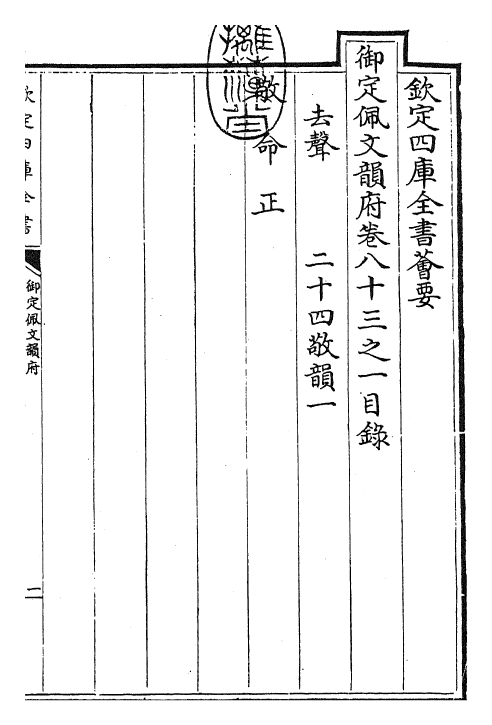 欽定四庫全書薈要
御定佩文韻府卷八十三之一目錄
去聲　二十四敬韻一
敬　命　正
欽定四庫全書
御定佩文韻府
一